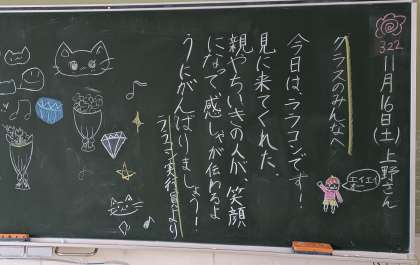 322
11月16日(土)上野さん
エイエイオー
クラスのみんなへ
今日は、ララコンです！
見に来てくれた、
親やちいきの人が、笑顔
になって、感しゃが伝わるよ
うにがんばりましょう！
ララコン実行員より